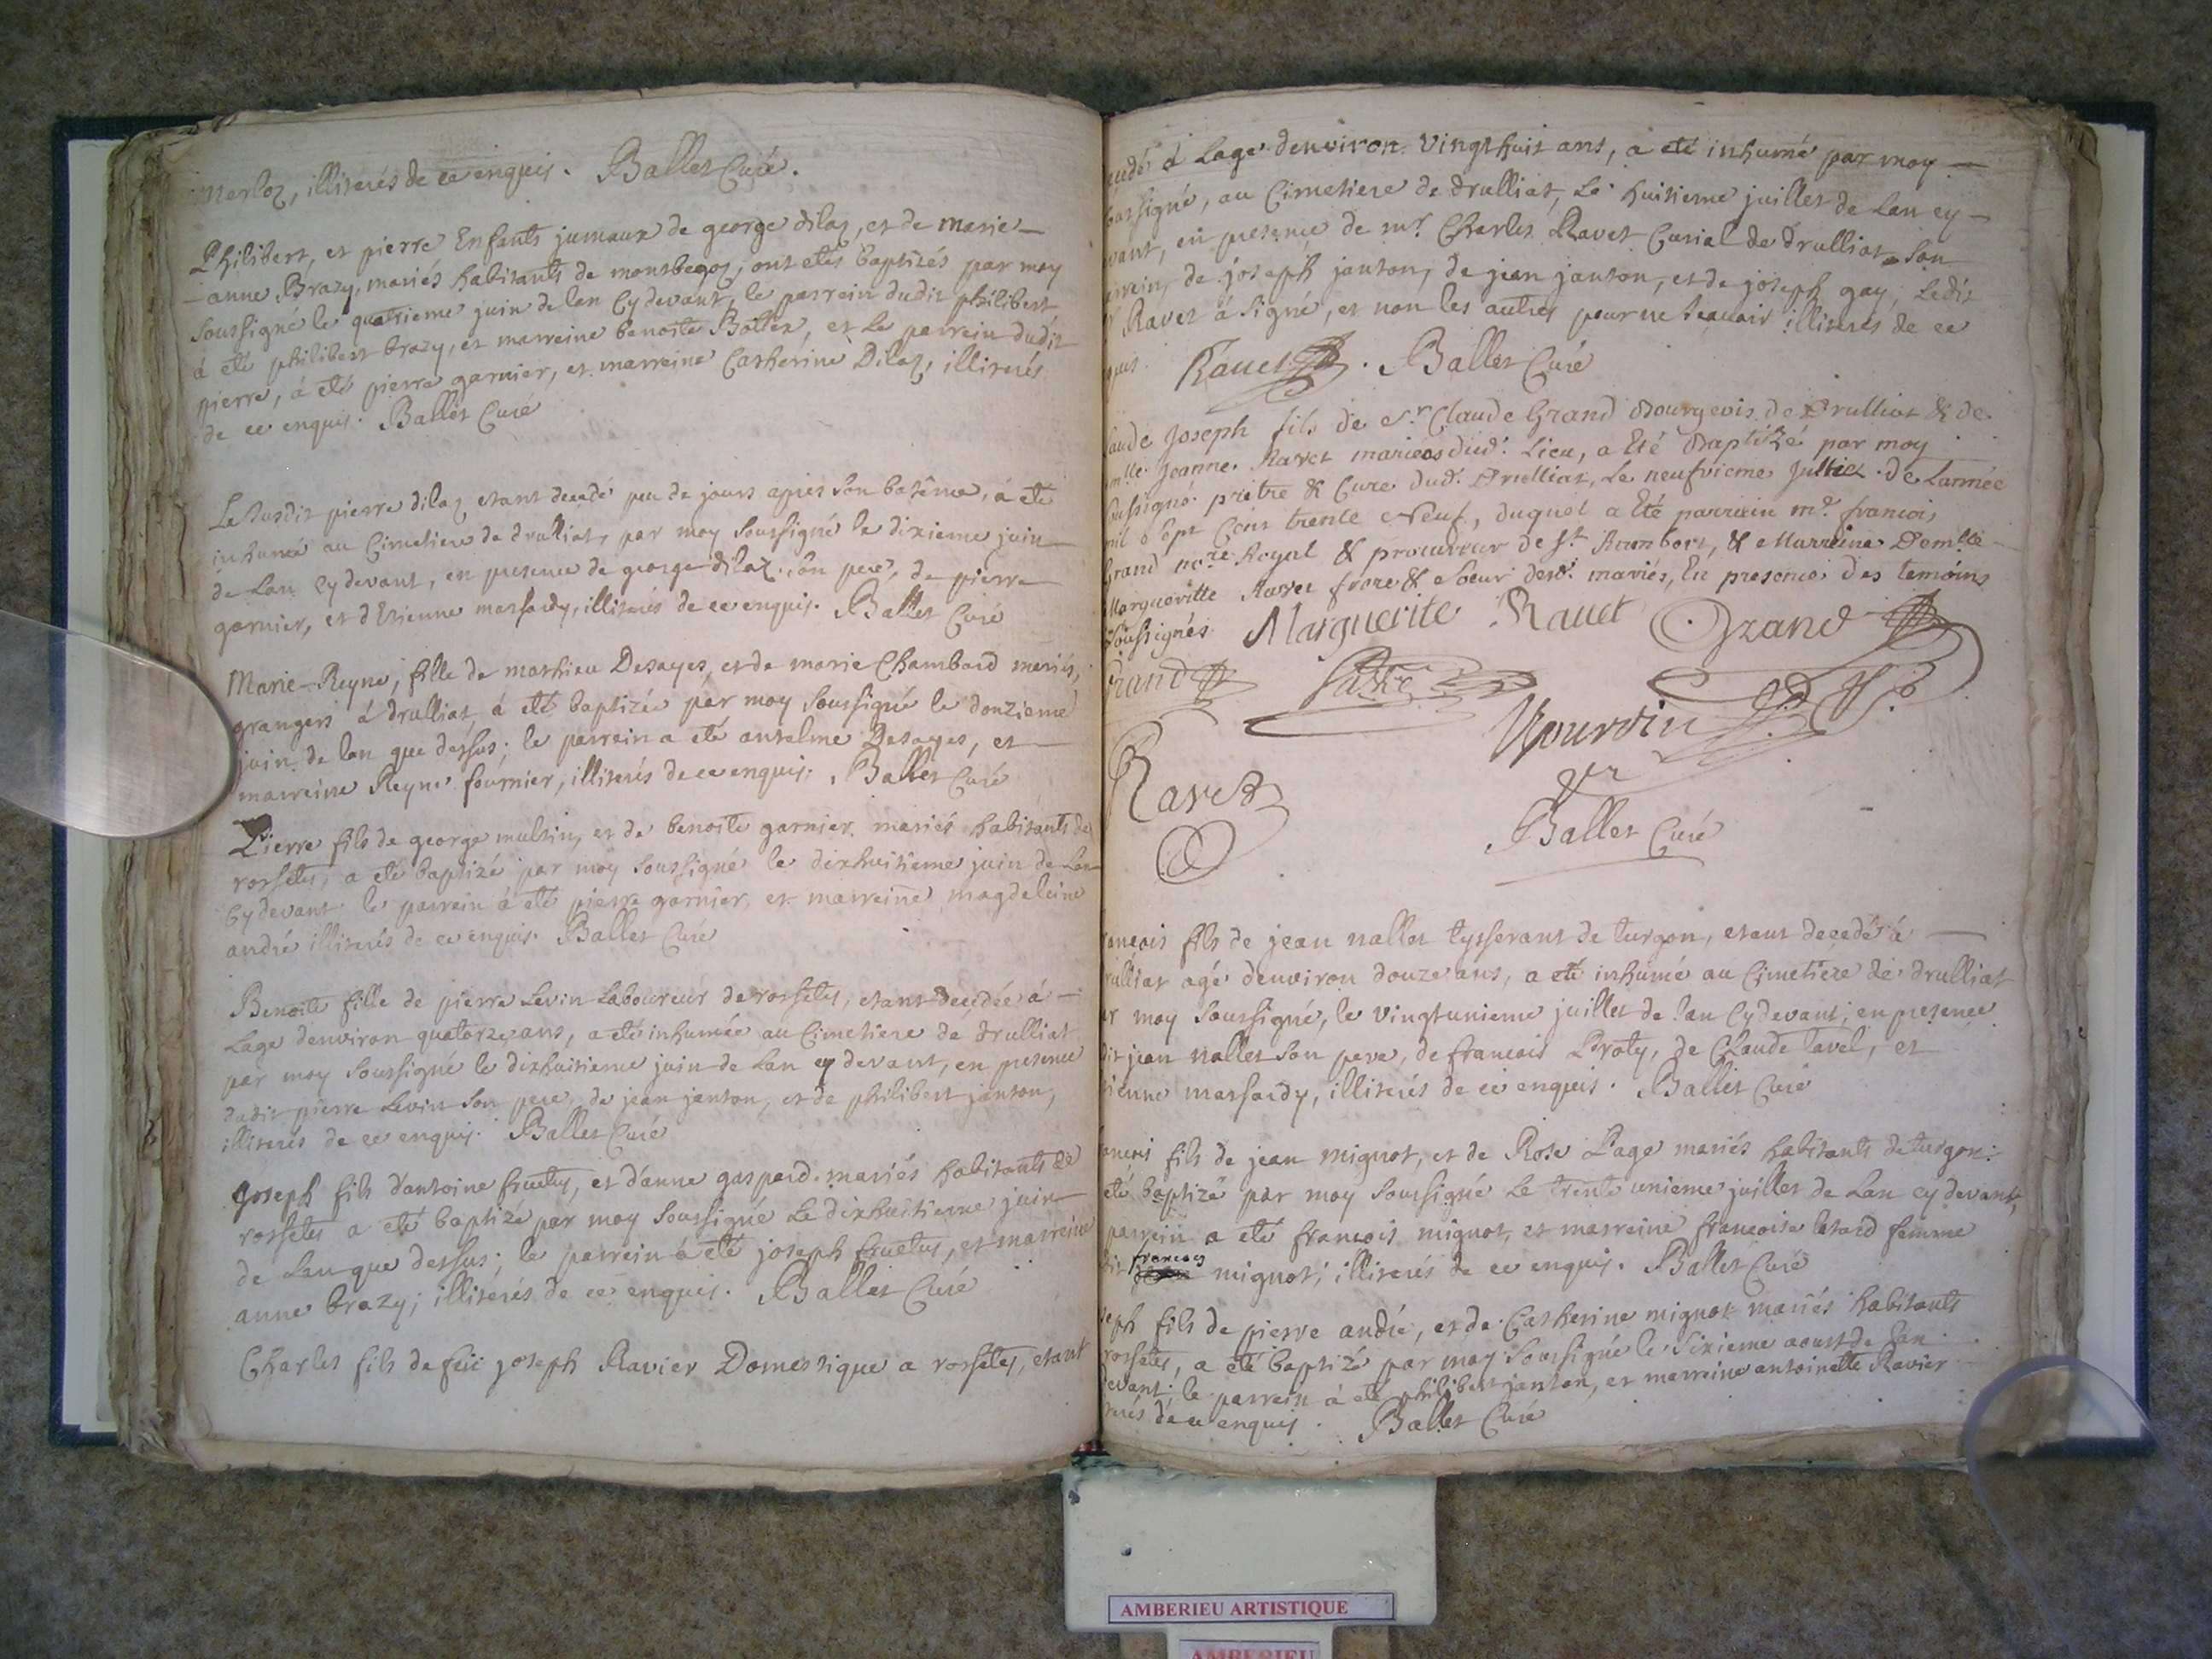 merloz, illiterés de ce enquis. Ballet Curé.
Philibert, et pierre Enfants jumaux de george dilaz, et de marie
-anne Brazy, mariés habitants de montbegoz, ont etés baptizés par moy
soussigné le quatrieme juin de lan cy devant, le parrein dudit philibert
à eté philibert brazy, et marreine benoite Bollex, et le parrein dudit
pierre, à eté pierre garnier, et marreine Catherine Dilaz, illiterés
de ce enquis. Ballet Curé
Le susdit pierre dilaz etant decedé peu de jours apres son batême, à eté
inhumé au Cimetiere de drulliat, par moy soussigné le dixieme juin
de Lan cydevant, en presence de george dilaz son pere, de pierre
garnier, et d'Etienne massardy, illiterés de ce enquis. Ballet Curé
Marie-Reyne, fille de mathieu Desayes, et de marie Chambard mariés,
grangers à drulliat, à eté baptizée par moy soussigné le douzieme
juin de lan que dessus; le parrein a eté antelme Desayes, et
marreine Reyne fournier, illiterés de ce enquis. Ballet Curé
Pierre fils de george multin, et de benoite garnier mariés habitants de
rossetes, a eté baptizé par moy soussigné le dixhuitieme juin de Lan
cydevant; le parrein à eté pierre garnier, et marreine magdeleine
andré illiterés de ce enquis. Ballet Curé
Benoite fille de pierre Levin Laboureur de rossetes, etant decedée à
Lage denviron quatorze ans, a eté inhumée au Cimetiere de drulliat
par moy soussigné le dixhuitieme juin de Lan cy devant, en presence
dudit pierre Levin son pere, de jean janton, et de philibert janton,
illiterés de ce enquis. Ballet Curé
Joseph fils d'antoine fruetus, et d'anne gaspard mariés habitants de
rossetes a eté baptizé par moy soussigné Le dixhuitieme juin
de Lan que dessus; le parrein à eté joseph fruetus, et marreine
anne brazy; illiterés de ce enquis. Ballet Curé
Charles fils de feu joseph Ravier Domestique a rossetes, etant
cedé à Lage denviron vingthuit ans, a eté inhumé par moy
soussigné, au Cimetiere de drulliat, Le huitieme juillet de Lan cy
devant, en presence de mr. Charles Ravet Curial de drulliat son
parrein, de joseph janton, de jean janton, et de joseph gay, Ledit
Ravet à signé, et non les autres pour ne scavoir illiterés de ce
enquis. Ravet. Ballet Curé
Claude Joseph fils de Sr. Claude Grand Bourgeois de Drulliat & de
mlle. Jeanne Ravet mariés dud. Lieu, a Eté Baptizé par moy
soussigné prêtre & Curé dud. Drulliat, Le neufvieme Juillet de Lannée
mil Sept Cent trente Neuf, duquel a Eté parrain mr. francois
Grand nore. Royal & procureur de St. Rambert, & Marraine Demlle
Margueritte Ravet frere & Soeur desd. mariés, En presence des temoins
soussignés. Marguerite Rauet Grand
Grand
Ravet
Ballet Curé
francois fils de jean nallet tysserant de turgon, etant decedé à
drulliat agé denviron douze ans, a eté inhumé au Cimetiere de drulliat
par moy soussigné, le vingtunieme juillet de lan Cydevant, en presence
dudit jean nallet son pere, de francois Proty, de Claude Tavel, et
etienne massardy, illiterés de ce enquis. Ballet Curé
francois fils de jean mignot, et de Rose Page mariés habitants de turgon
eté baptizé par moy soussigné Le trente unieme juillet de Lan cy devant,
parrein a eté francois mignot, et marreine francoise letard femme
dudit francois mignot; illiterés de ce enquis. Ballet Curé
joseph fils de pierre andré, et de Catherine mignot mariés habitants
rossetes, a eté baptizé par moy soussigné le Sixieme aoust de lan
devant; le parrein à eté philibert janton, et marreine antoinette Ravier
illiterés de ce enquis. Ballet Curé
AMBERIEU ARTISTIQUE
AMBERIEU